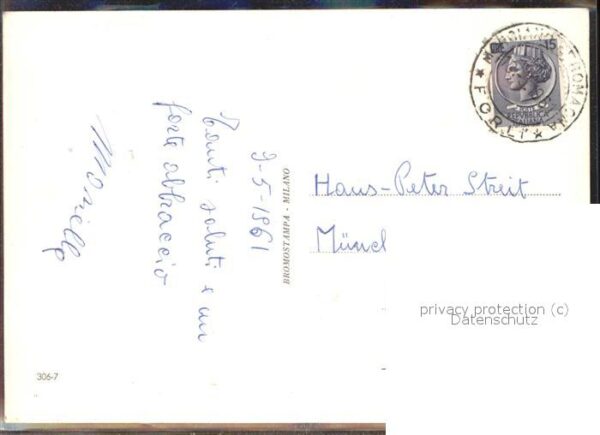 9-5-1961
Tanti saluti e un
forte abbraccio
BROMOSTAMPA - MILANO
LIRE 15
POSTE
REPUBBLICA
ITALIANA
ROMAGNA
* FORLI' *
Hans-Peter Streit
Münch
privacy protection (c)
Datenschutz
306-7